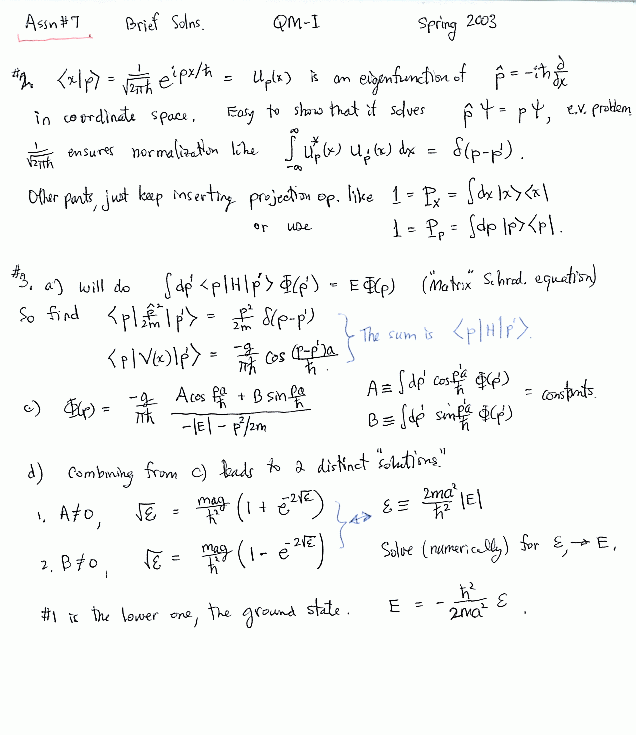 Assn#7 Brief Solns. QM-I Spring 2003
#2. ⟨x|p⟩ = 1/√(2πħ) e^{ipx/ħ} = u_p(x) is an eigenfunction of p̂ = -iħ ∂/∂x
in coordinate space. Easy to show that it solves p̂ Ψ = pΨ, e.v. problem
1/√(2πħ) ensures normalization like ∫_{-∞}^{∞} u_p^*(x) u_p'(x) dx = δ(p-p').
Other parts, just keep inserting projection op. like 1 = P_x = ∫dx |x⟩⟨x|
or use 1 = P_p = ∫dp |p⟩⟨p|.
#3. a) will do ∫dp' ⟨p|H|p'⟩ Φ(p') = E Φ(p) ("Matrix" Schrod. equation)
So find ⟨p|p̂²/2m|p'⟩ = p²/2m δ(p-p')
⟨p|V(x)|p'⟩ = -g/πħ cos (p-p')a/ħ.
} The sum is ⟨p|H|p'⟩.
c) Φ(p) = -g/πħ (A cos pa/ħ + B sin pa/ħ)/(-|E| - p²/2m)
A ≡ ∫dp' cos p'a/ħ Φ(p')
B ≡ ∫dp' sin p'a/ħ Φ(p')
= constants.
d) Combining from c) leads to 2 distinct "solutions."
1. A≠0, √ε = mag/ħ² (1 + e^{-2√ε}) } ↔ ε ≡ 2ma²/ħ² |E|
2. B≠0, √ε = mag/ħ² (1 - e^{-2√ε}) Solve (numerically) for ε, → E.
#1 is the lower one, the ground state. E = - ħ²/2ma² ε.